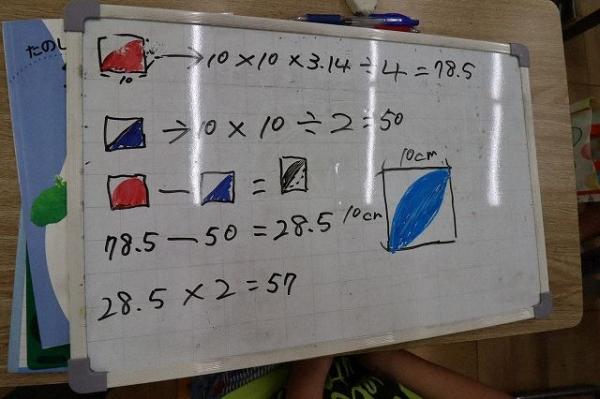 たのし
10 → 10 × 10 × 3.14 ÷ 4 = 78.5
→ 10 × 10 ÷ 2 = 50
— =
78.5 — 50 = 28.5
28.5 × 2 = 57
10cm
10cm